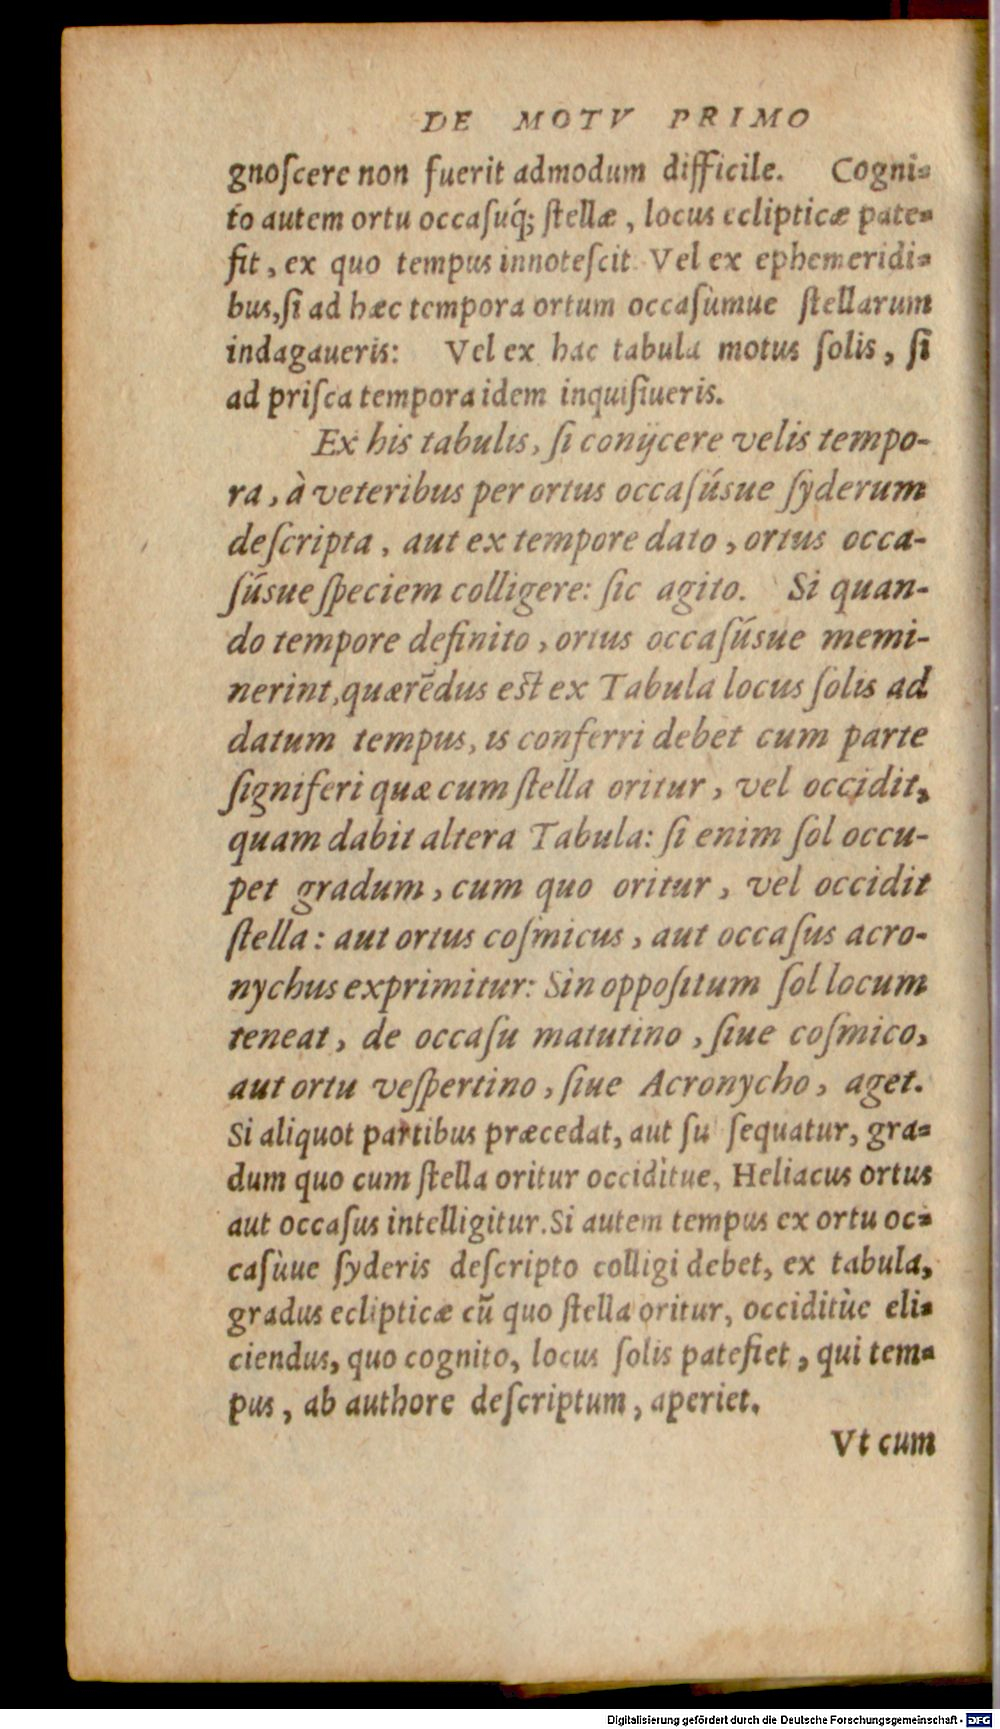 DE MOTV PRIMO
gnoſcere non fuerit admodum difficile. Cogni-
to autem ortu occaſuq́; ſtellæ, locus eclipticæ pate-
fit, ex quo tempus innoteſcit. Vel ex ephemeridi-
bus, ſi ad hæc tempora ortum occaſùmue ſtellarum
indagaueris: Vel ex hac tabula motus ſolis, ſi
ad priſca tempora idem inquiſiueris.
Ex his tabulis, ſi conijcere velis tempo-
ra, à veteribus per ortus occaſúsue ſyderum
deſcripta, aut ex tempore dato, ortus occa-
ſúsue ſpeciem colligere: ſic agito. Si quan-
do tempore definito, ortus occaſúsue memi-
nerint, quærẽdus est ex Tabula locus ſolis ad
datum tempus, is conferri debet cum parte
ſigniferi quæ cum ſtella oritur, vel occidit,
quam dabit altera Tabula: ſi enim ſol occu-
pet gradum, cum quo oritur, vel occidit
ſtella: aut ortus coſmicus, aut occaſus acro-
nychus exprimitur: Sin oppoſitum ſol locum
teneat, de occaſu matutino, ſiue coſmico,
aut ortu veſpertino, ſiue Acronycho, aget.
Si aliquot partibus præcedat, aut ſu ſequatur, gra-
dum quo cum ſtella oritur occidìtue, Heliacus ortus
aut occaſus intelligitur. Si autem tempus ex ortu oc-
caſùue ſyderis deſcripto colligi debet, ex tabula,
gradus eclipticæ cũ quo ſtella oritur, occiditùe eli-
ciendus, quo cognito, locus ſolis patefiet, qui tem-
pus, ab authore deſcriptum, aperiet.
Vt cum
Digitalisierung gefördert durch die Deutsche Forschungsgemeinschaft - DFG